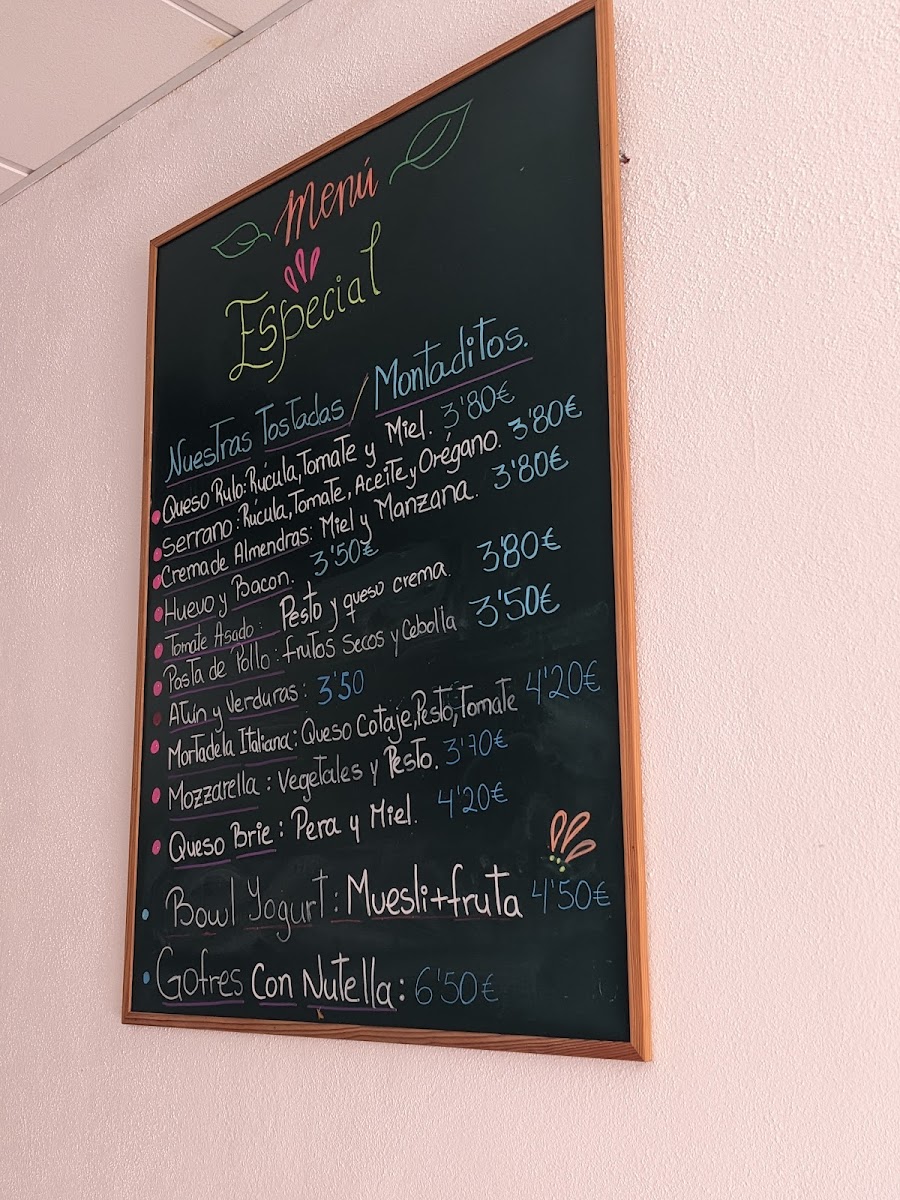 Menú
Especial
Nuestras Tostadas / Montaditos.
Queso Rulo: Rúcula, Tomate y Miel. 3'80€
Serrano: Rúcula, Tomate, Aceite y Orégano. 3'80€
Crema de Almendras: Miel y Manzana. 3'80€
Huevo y Bacon. 3'50€
Tomate Asado: Pesto y queso crema. 3'80€
Pasta de Pollo: frutos secos y Cebolla 3'50€
Atún y Verduras: 3'50
Mortadela Italiana: Queso Cotaje, Pesto, Tomate 4'20€
Mozzarella: Vegetales y Pesto. 3'70€
Queso Brie: Pera y Miel. 4'20€
Bowl Yogurt: Muesli+fruta 4'50€
Gofres Con Nutella: 6'50€